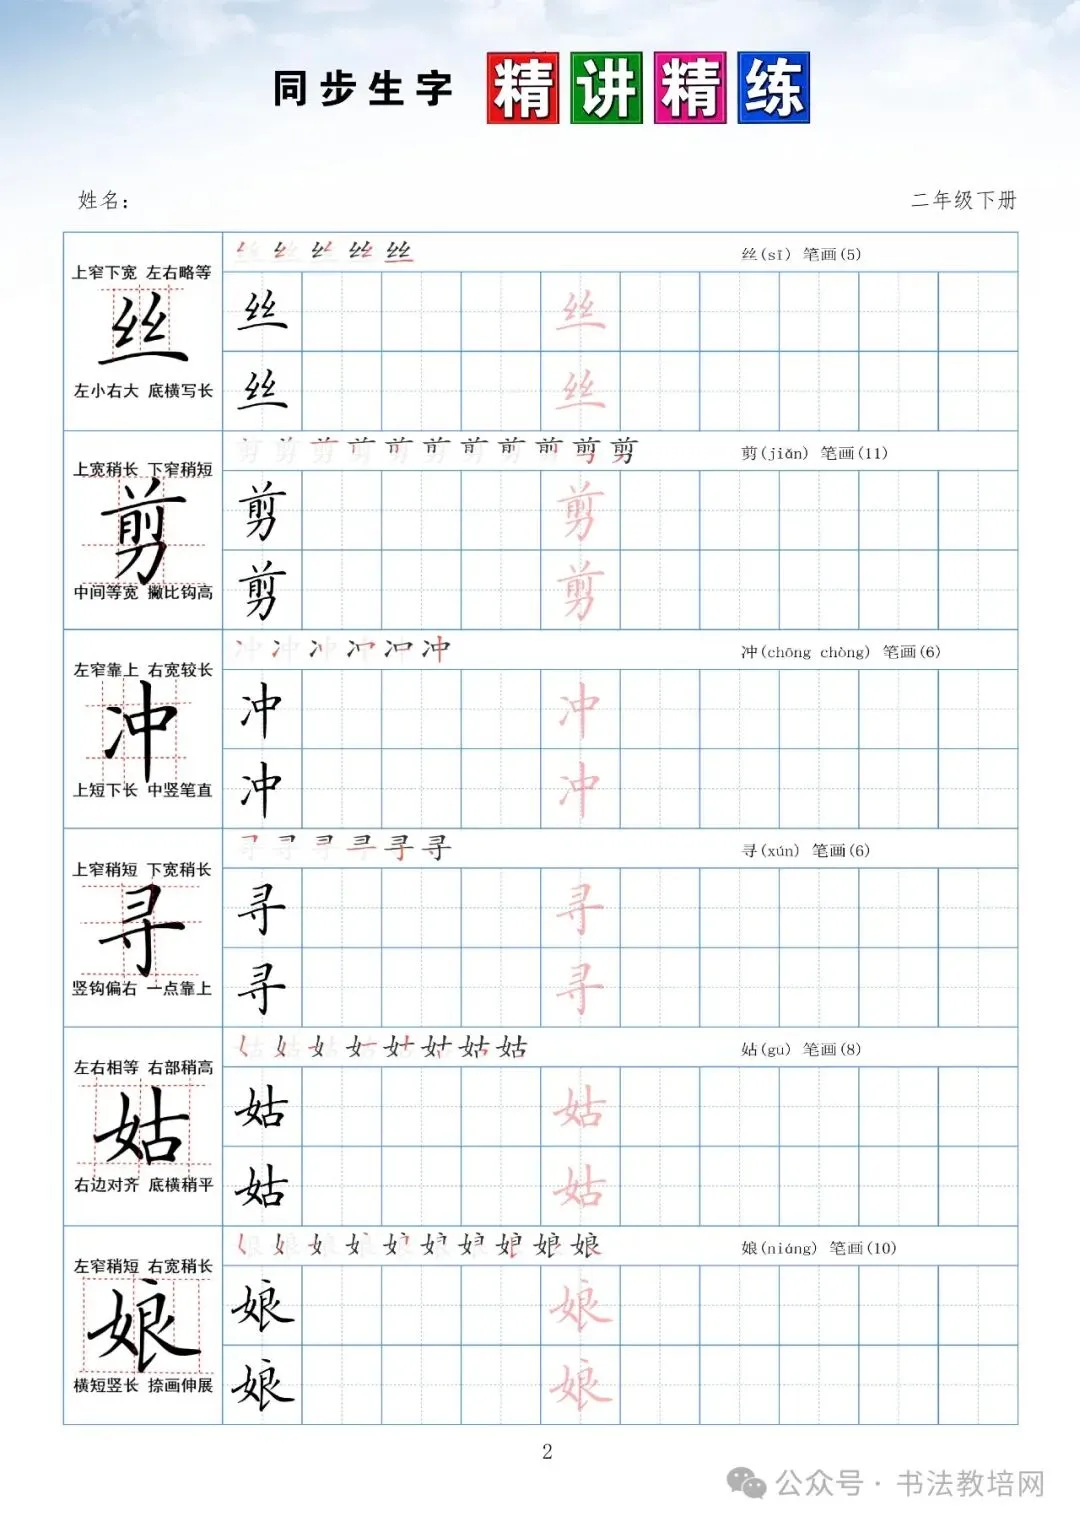 同步生字 精讲精练
姓名：
二年级下册
上窄下宽 左右略等
丝
左小右大 底横写长
丝(sī) 笔画(5)
丝 丝
丝 丝
上宽稍长 下窄稍短
剪
中间等宽 撇比钩高
剪(jiǎn) 笔画(11)
剪 剪
剪 剪
左窄靠上 右宽较长
冲
上短下长 中竖笔直
冲(chōng chòng) 笔画(6)
冲 冲
冲 冲
上窄稍短 下宽稍长
寻
竖钩偏右 一点靠上
寻(xún) 笔画(6)
寻 寻
寻 寻
左右相等 右部稍高
姑
右边对齐 底横稍平
姑(gū) 笔画(8)
姑 姑
姑 姑
左窄稍短 右宽稍长
娘
横短竖长 捺画伸展
娘(niáng) 笔画(10)
娘 娘
娘 娘
2
公众号·书法教培网